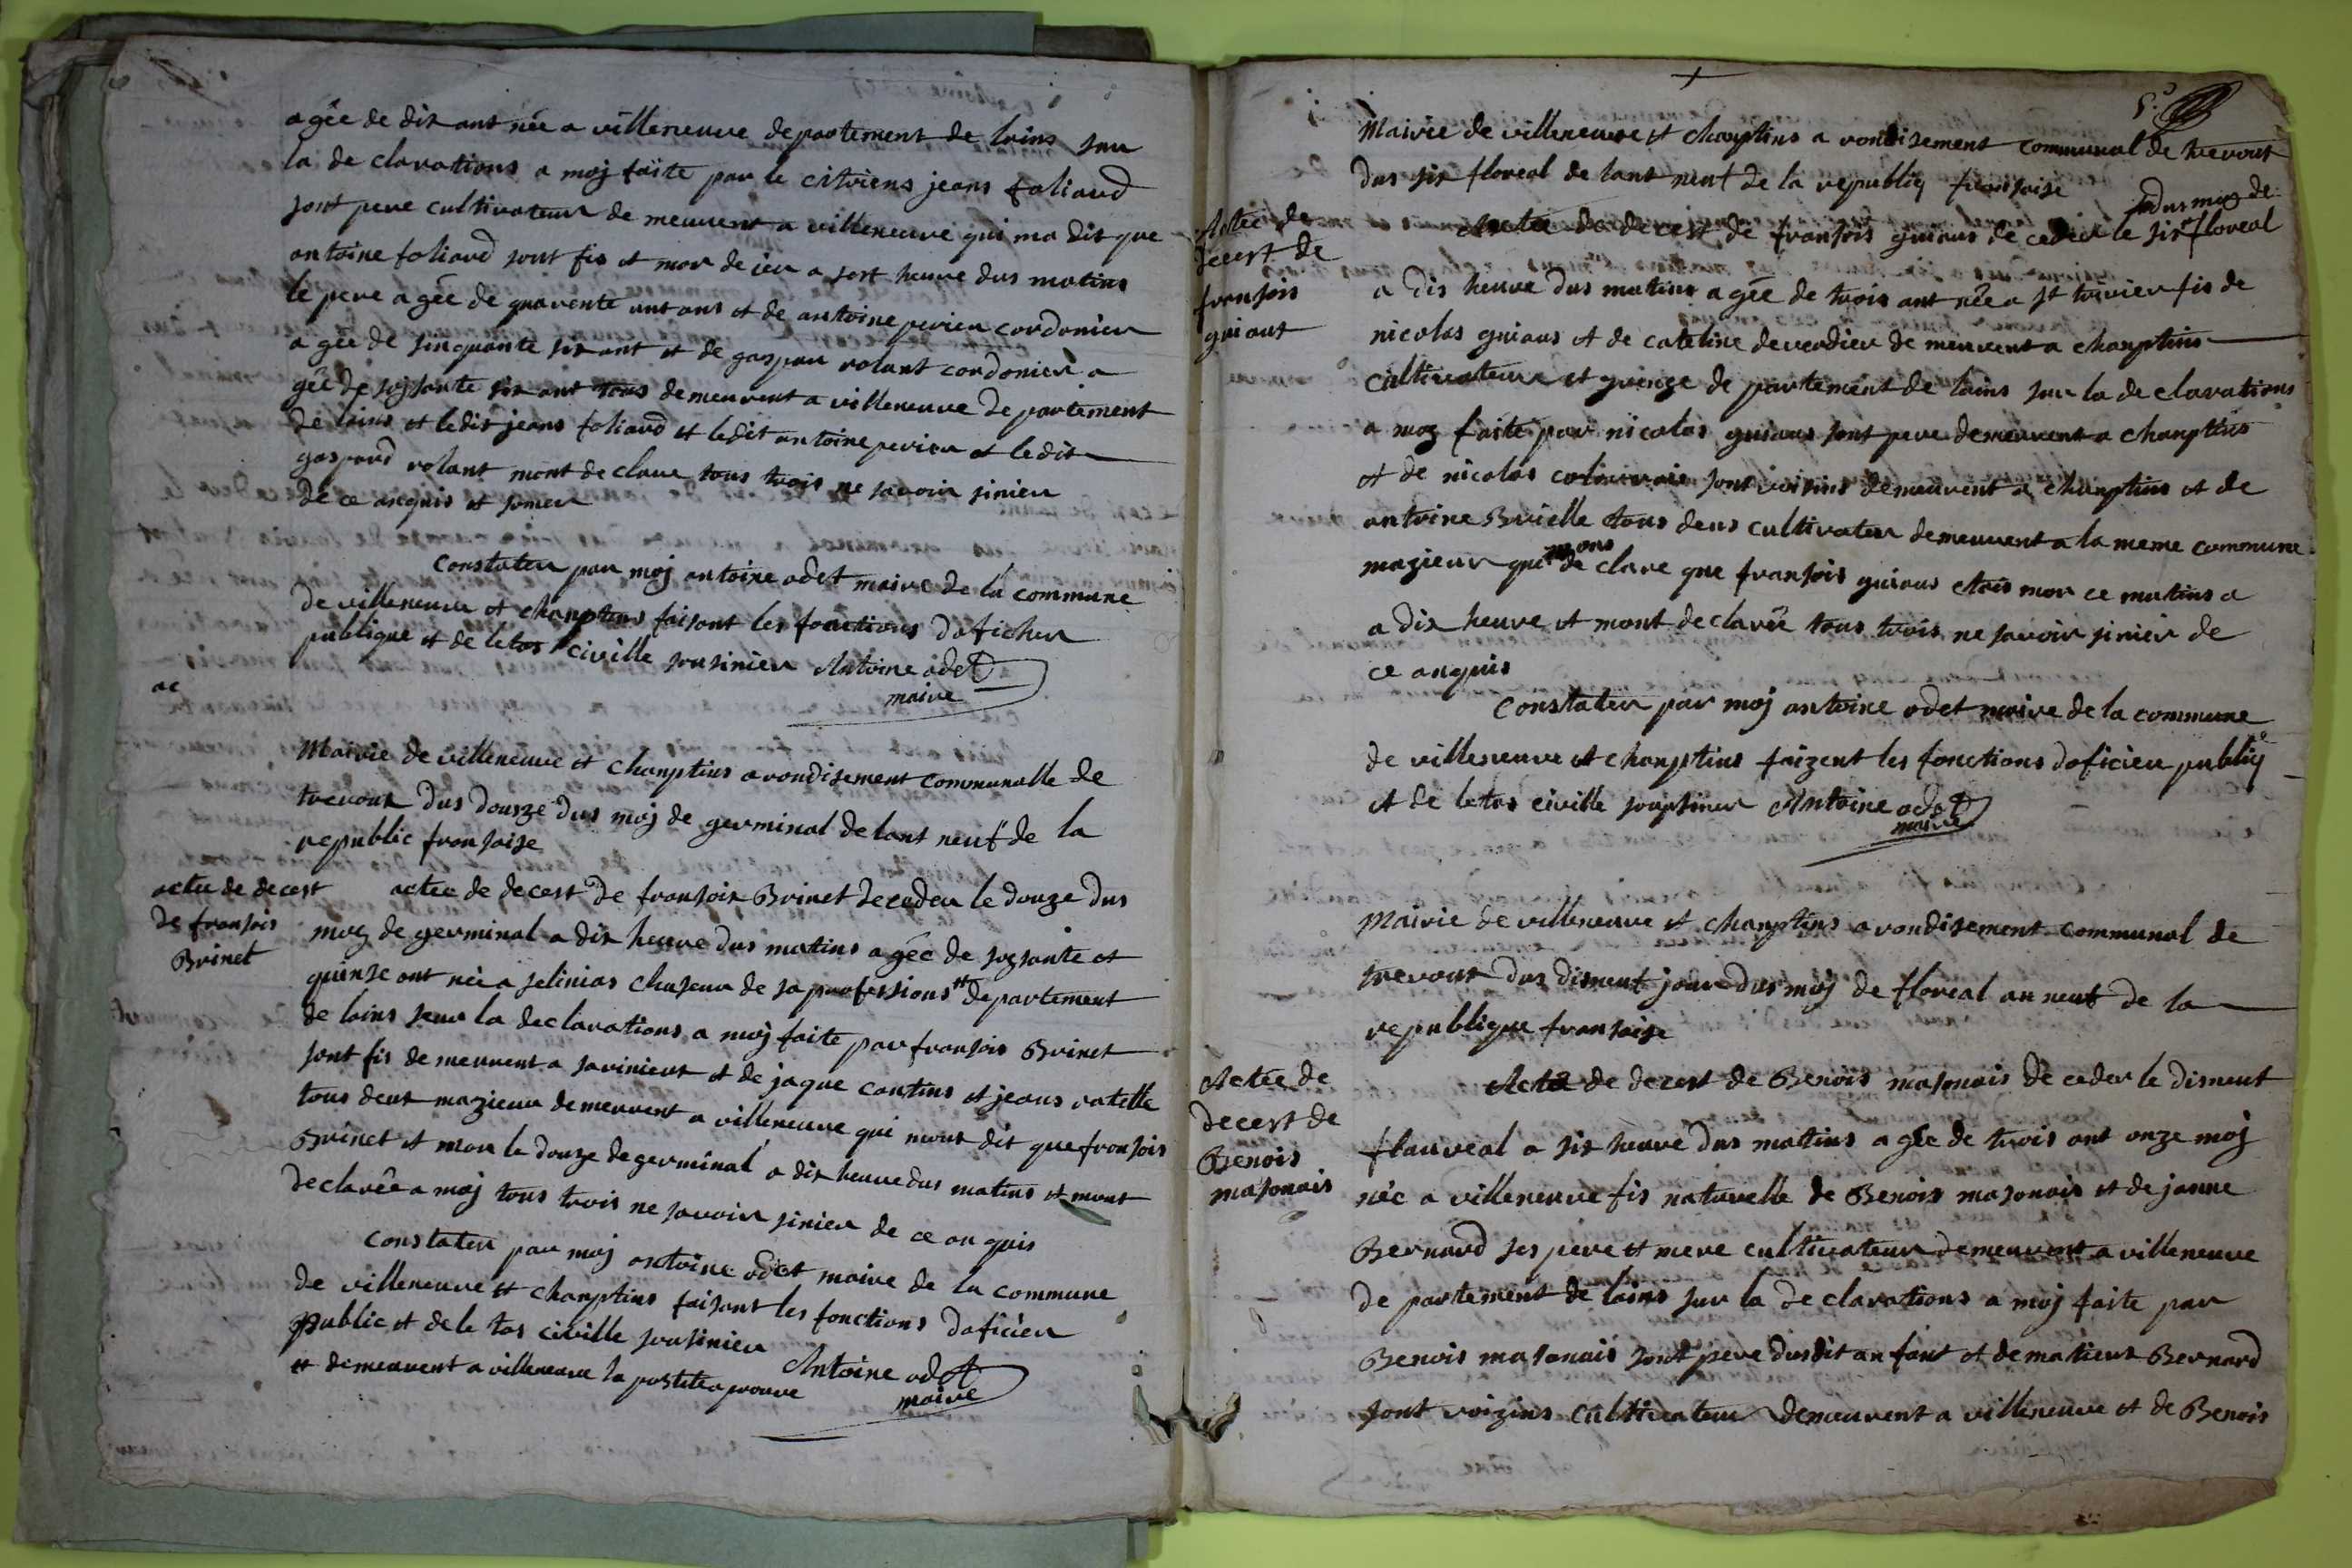 agée de dix ant née a villeneuve departement de lains sur
la de clarations a moj faite par le citoiens jeans foliard
sont pere cultivateur de meurent a villeneuve qui ma dit que
antoine foliard sont fis et mor de ier a sest heure dus matins
le pere agée de quarente unt ans et de antoine perier cordonier
a gée de sinquante six ant et de gaspar rolant cordonier a
gée de soisante six ant tous demeurent a villeneuve departement
de lains et ledit jeans foliard et ledit antoine perier et ledit
gaspard rolant mont de clare tous trois ne savoir sinier
de ce anquis et somer
Constater par moj antoine odet maire de la commune
de villeneuve et chanptins faisant les fonctions daficher
publique et de letas civille sousinier Antoine odet
maire
ac
Mairie de villeneuve et chanptins a rondisement communalle de
trevoux dus douze dus moj de germinal de lant neuf de la
republic fransaise
actee de decest
de fransois
Brinet
actee de decest de fransois Brinet deceder le douze dus
moy de germinal a dix heure dus matins agée de soysante et
quinse ant née a selinias chaseur de sa professions # departement
de lains seur la declarations a moj faite par fransois Brinet
sont fis demeurent a savinieux et de jaque contins et jeans ratelle
tous deux mazieur demeurent a villeneuve qui mont dit que fransois
Brinet et mor le douze de germinal a dix heure dus matins et mont
declarée a moj tous trois ne savoir sinier de ce an quis
Constater par moj antoine odet maire de la commune
de villeneuve et chanptins faisant les fonctions daficier
public et de le tas civille sousinier
# demeurent a villeneuve la postite aprouve Antoine odet
maire
5e
Mairie de villeneuve et chanptins a rondisement communal de trevoux
dus six floreal de lant neuf de la republiq fransoise
Actee de
decest de
fransois
guiaut
Actee de decest de fransois guiaus de ceder le six dus moy de floreal
a dis heure dus matins agée de trois ant née a st trivier fis de
nicolas guiaus et de cateline deverdier de meurent a chanptins
cultivateur et grenge de partement de lains sur la de clarations
a moy faite par nicolas guiaus sont pere demeurent a chanptins
et de nicolas sont voisins demeurent a chanptins et de
antoine Brielle tous deus cultivateur demeurent a la meme commune
mazieur qui mons de clare que fransois guiaus etais mor ce matins a
a dix heure et mont declarée tous trois ne savoir sinier de
ce anquis
Constater par moj antoine odet maire de la commune
de villeneuve et chanptins faizent les fonctions daficier publiq
et de letas civille soupsiner Antoine odet
maire
Mairie de villeneuve et chanptins a rondisement communal de
trevoux dus disneuf jour dus moj de floreal an neuf de la
republique fransaise
Actee de
decest de
Benois
masonais
Actee de decest de Benois masonais de ceder le disneuf
flaureal a six heure dus matins a gée de trois ant onze moj
née a villeneuve fis naturelle de Benois masonais et de janne
Bernard ses pere et mere cultivateur demeurent a villeneuve
de partement de lains sur la de clarations a moj faite par
Benois masonais sont pere dusdit anfant et de matieus Bernard
sont voizins cultivateur demeurent a villeneuve et de Benois